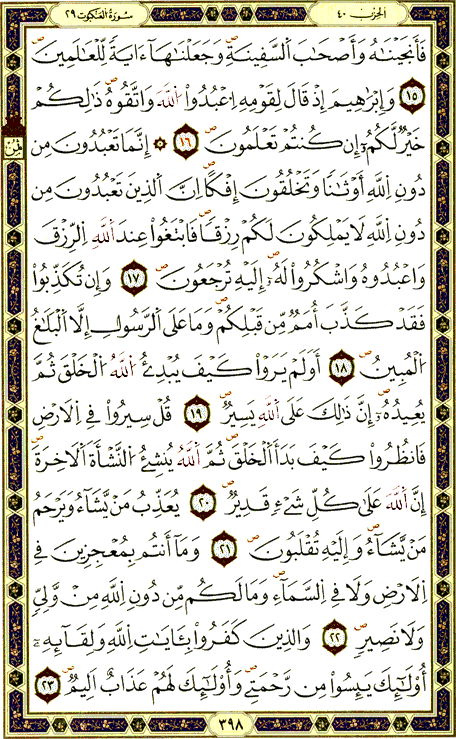 الحزب ٤٠
سورة العنكبوت ٢٩
فَأَنجَيْنَٰهُ وَأَصْحَٰبَ اَ۬لسَّفِينَةِ وَجَعَلْنَٰهَا ءَايَةٗ لِّلْعَٰلَمِينَ
١٥ وَإِبْرَٰهِيمَ إِذْ قَالَ لِقَوْمِهِ اِ۟عْبُدُوا۟ اُ۬للَّهَ وَاتَّقُوهُ ذَٰلِكُمْ
خَيْرٌ لَّكُمُۥٓ إِن كُنتُمْ تَعْلَمُونَ ١٦ ۞ إِنَّمَا تَعْبُدُونَ مِن
دُونِ اِ۬للَّهِ أَوْثَٰنًا وَتَخْلُقُونَ إِفْكًا اِنَّ اَ۬لَّذِينَ تَعْبُدُونَ مِن
دُونِ اِ۬للَّهِ لَا يَمْلِكُونَ لَكُمْ رِزْقًا فَابْتَغُوا۟ عِندَ اَ۬للَّهِ اِ۬لرِّزْقَ
وَاعْبُدُوهُ وَاشْكُرُوا۟ لَهُۥٓ إِلَيْهِ تُرْجَعُونَ ١٧ وَإِن تُكَذِّبُوا۟
فَقَدْ كَذَّبَ أُمَمٌ مِّن قَبْلِكُمْ وَمَا عَلَى اَ۬لرَّسُولِ إِلَّا اَ۬لْبَلَٰغُ
اُ۬لْمُبِينُ ١٨ أَوَلَمْ يَرَوْا۟ كَيْفَ يُبْدِئُ اُ۬للَّهُ اُ۬لْخَلْقَ ثُمَّ
يُعِيدُهُۥٓ إِنَّ ذَٰلِكَ عَلَى اَ۬للَّهِ يَسِيرٌ ١٩ قُلْ سِيرُوا۟ فِے اِ۬لَارْضِ
فَانظُرُوا۟ كَيْفَ بَدَأَ اَ۬لْخَلْقَ ثُمَّ اَ۬للَّهُ يُنشِئُ اُ۬لنَّشْأَةَ اَ۬لَاخِرَةَ
إِنَّ اَ۬للَّهَ عَلَىٰ كُلِّ شَےْءٍ قَدِيرٌ ٢٠ يُعَذِّبُ مَنْ يَّشَآءُ وَيَرْحَمُ
مَنْ يَّشَآءُ وَإِلَيْهِ تُقْلَبُونَ ٢١ وَمَآ أَنتُم بِمُعْجِزِينَ فِے
اِ۬لَارْضِ وَلَا فِے اِ۬لسَّمَآءِ وَمَا لَكُم مِّن دُونِ اِ۬للَّهِ مِنْ وَّلِيٍّ
وَلَا نَصِيرٍ ٢٢ وَالَّذِينَ كَفَرُوا۟ بِـَٔايَٰتِ اِ۬للَّهِ وَلِقَآئِهِۦٓ
أُو۟لَٰٓئِكَ يَئِسُوا۟ مِن رَّحْمَتِے وَأُو۟لَٰٓئِكَ لَهُمْ عَذَابٌ اَلِيمٌ ٢٣
٣٩٨